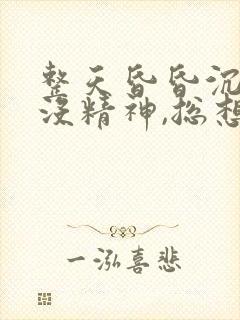 整天昏昏沉
没精神,总想
一泓喜悲